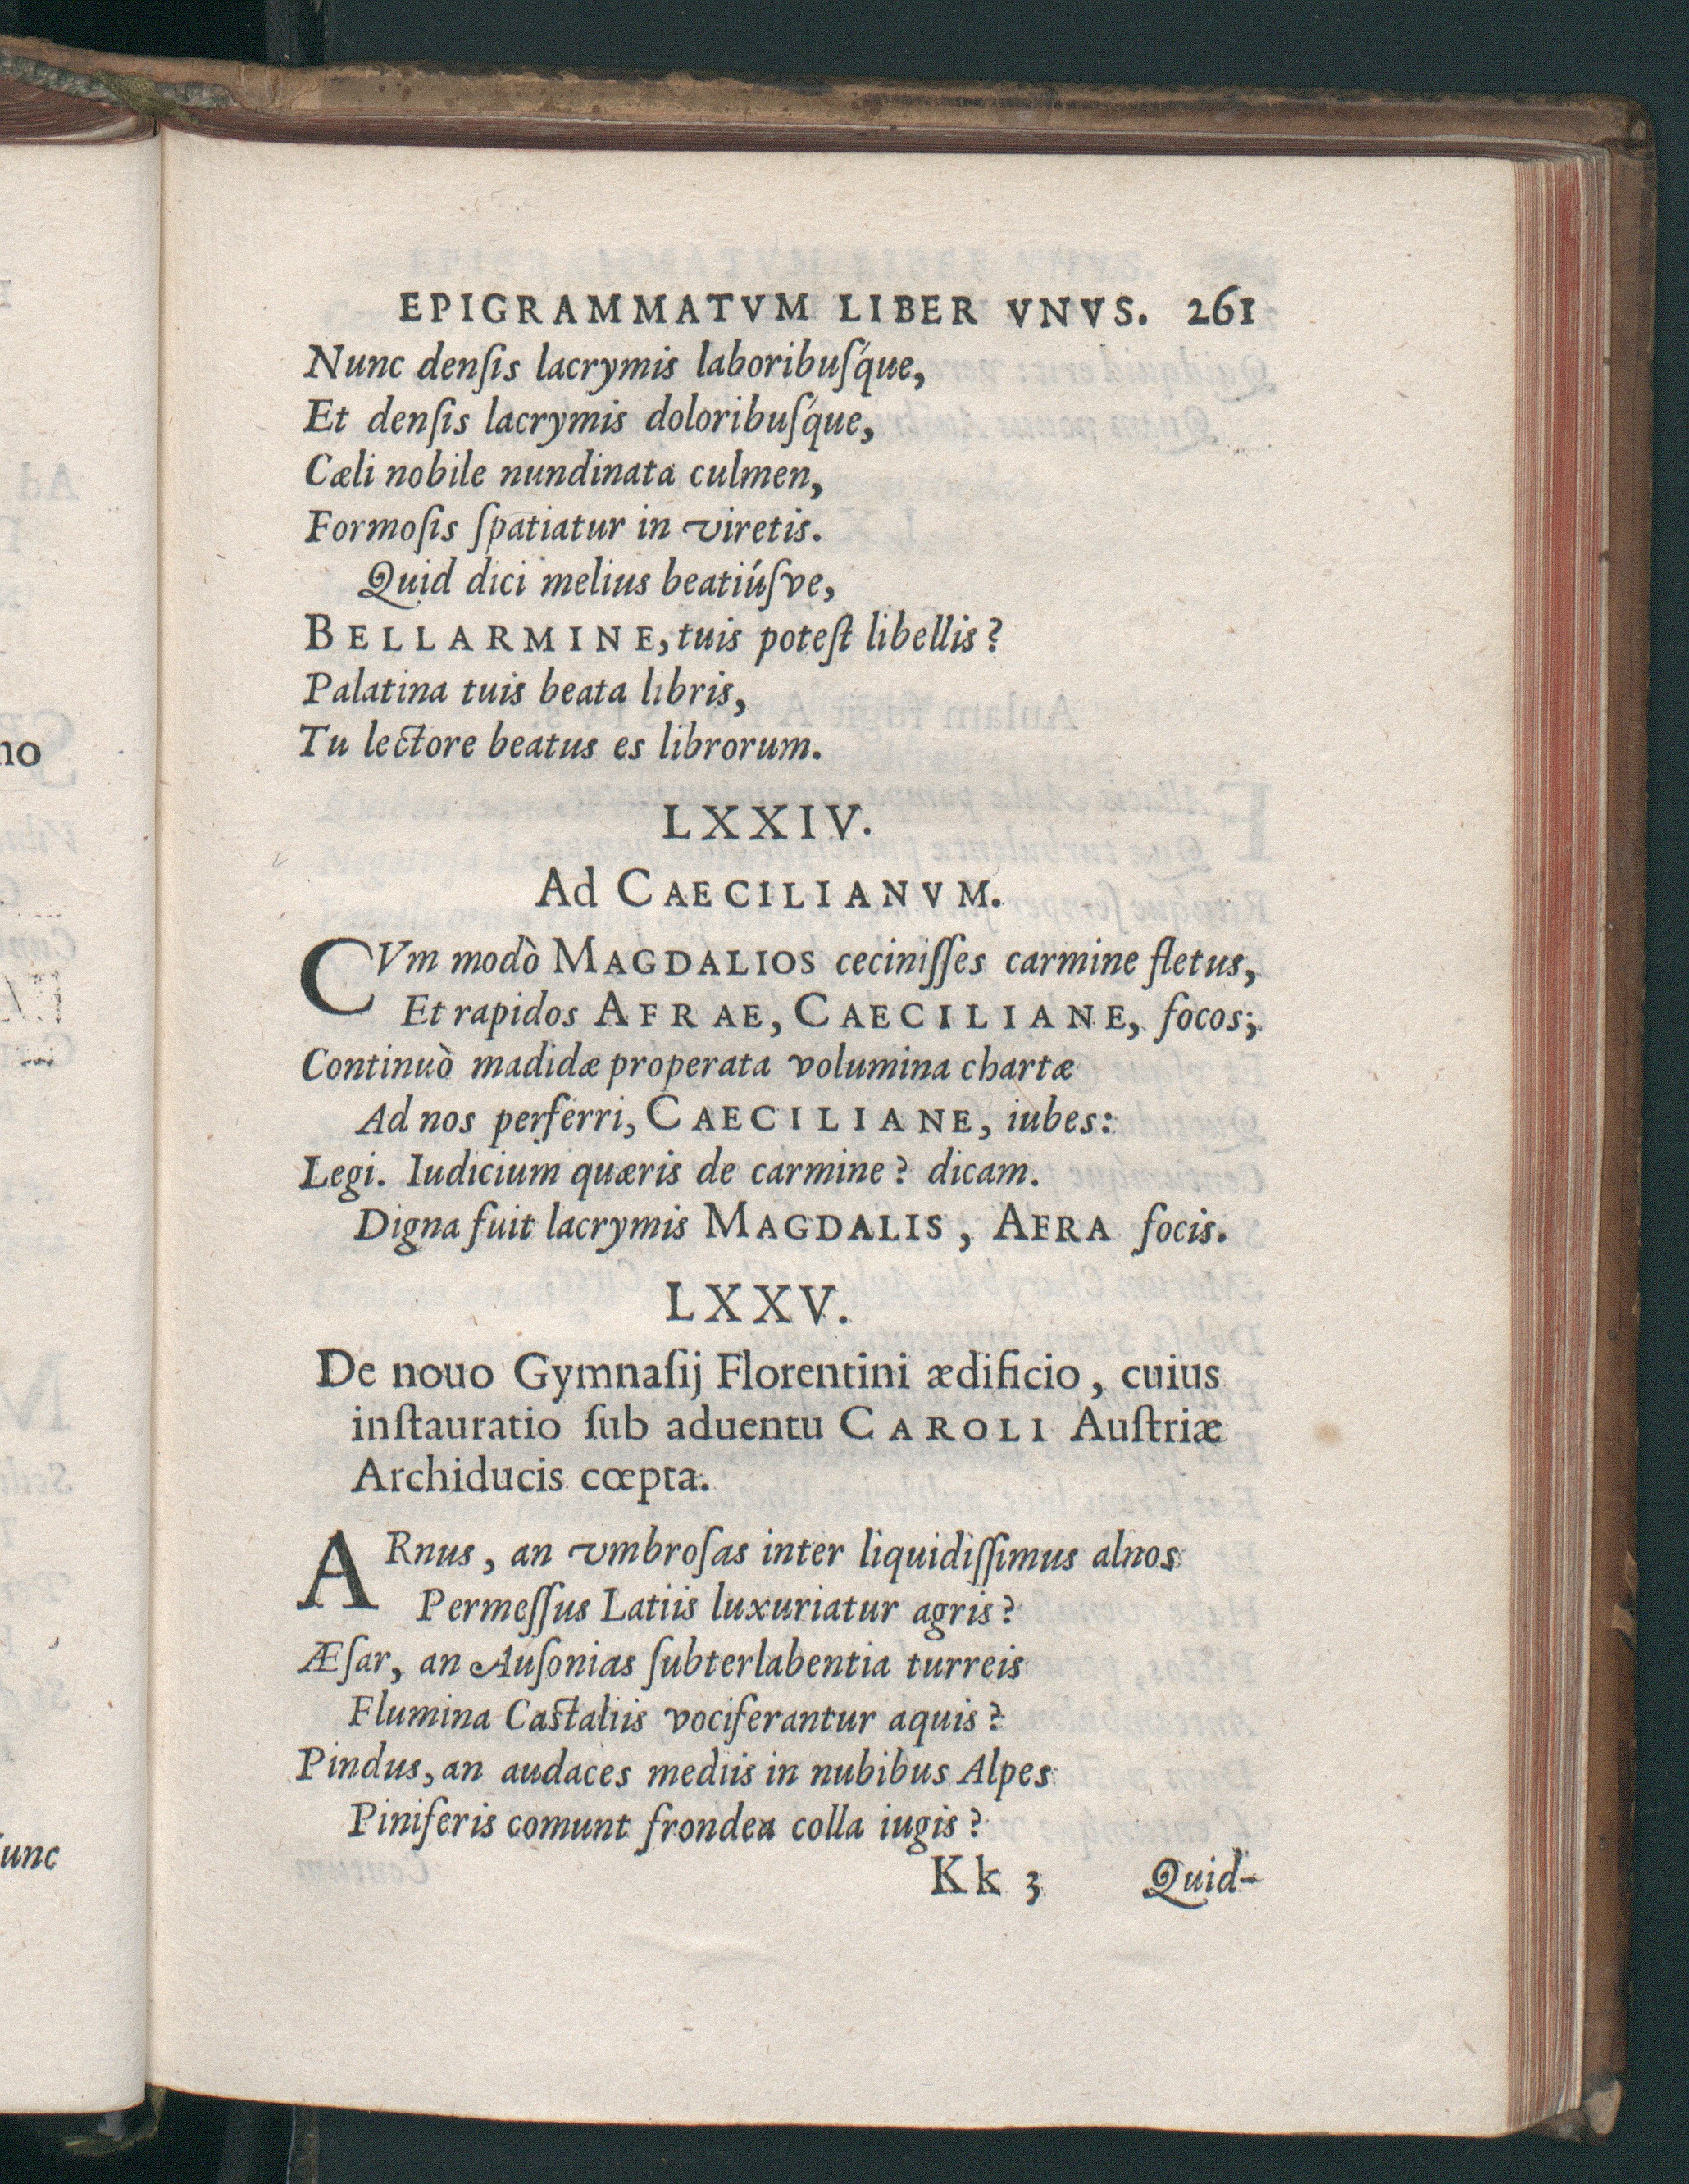 EPIGRAMMATVM LIBER VNVS. 261
Nunc denſis lacrymis laboribuſq́ue,
Et denſis lacrymis doloribuſq́ue,
Cæli nobile nundinata culmen,
Formoſis ſpatiatur in viretis.
Quid dici melius beatiúſve,
BELLARMINE, tuis poteſt libellis?
Palatina tuis beata libris,
Tu lectore beatus es librorum.
LXXIV.
Ad CAECILIANVM.
CVm modò MAGDALIOS ceciniſſes carmine fletus,
Et rapidos AFRAE, CAECILIANE, focos;
Continuò madidæ properata volumina chartæ
Ad nos perferri, CAECILIANE, iubes:
Legi. Iudicium quæris de carmine? dicam.
Digna fuit lacrymis MAGDALIS, AFRA focis.
LXXV.
De nouo Gymnaſij Florentini ædificio, cuius
inſtauratio ſub aduentu CAROLI Auſtriæ
Archiducis cœpta.
ARnus, an vmbroſas inter liquidiſſimus alnos
Permeſſus Latiis luxuriatur agris?
Æſar, an Auſonias ſubterlabentia turreis
Flumina Caſtaliis vociferantur aquis?
Pindus, an audaces mediis in nubibus Alpes
Piniferis comunt frondea colla iugis?
Kk 3 Quid-
no
unc